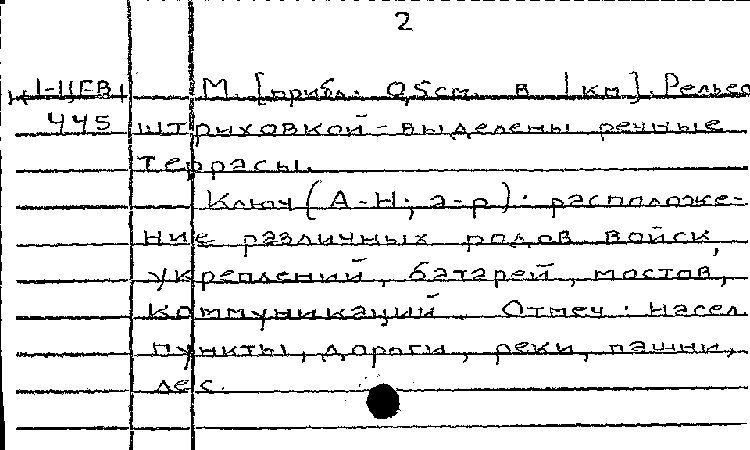 2
М. [прибл. 0,5см. в 1км]. Рельеф
445 штриховкой - выделены речные
террасы.
Ключ (А-Н; а-р): расположе-
ние различных родов войск,
укреплений, батарей, мостов,
коммуникаций. Отмеч: насел.
пункты, дороги, реки, пашни,
лес.